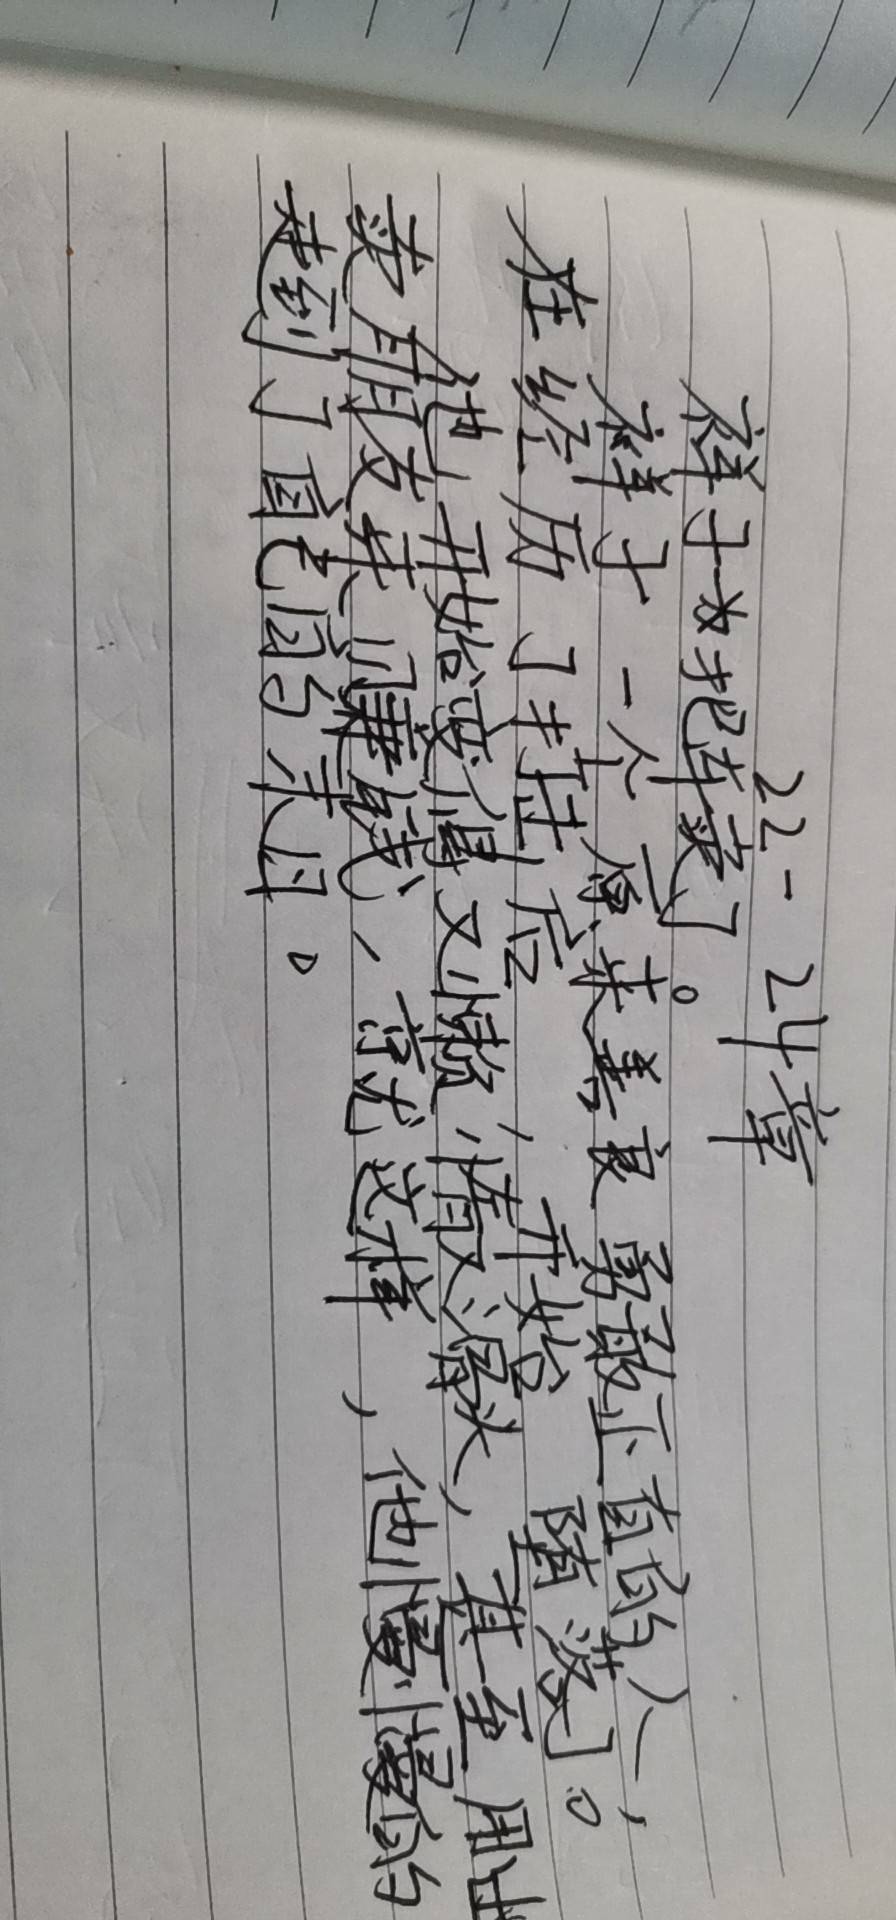 22-24章
祥子为把车卖了。
祥子一个原来善良勇敢正直的人，
在经历了后，开始堕落了。
他开始变得又懒，惰又滑头，甚至用出
卖朋友来赚钱、就这样，他慢慢的
走到了自己的末日。